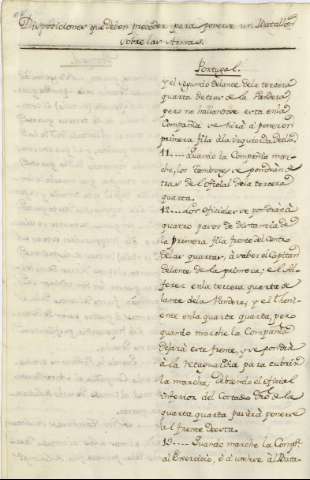 Disposiciones que deben preceder para ponerse un Batallon
sobre las Armas.
Portugal.
y el segundo delante dela tercera
quarta detras de la Bandera,
pero no hallandose esta en la
Compañia se hirà à poner en
primera fila à la izquierda
11.... Quando la Compañia mar-
che, los Tambores se pondràn de-
tras del oficial dela tercera
quarta.
12.... Los Oficiales se pondràn à
quatro pasos de distancia de
la primera fila frente del centro
delas quartas, à saber el Capitan
delante de la primera; el Al-
ferez en la tercera quarta de-
lante dela Bandera, y el Theni-
ente en la quarta quarta, pero
quando marche la Compañia
dejarà este frente, y se pondrà
à la retaguardia para cubrir
la marcha, debiendo el oficial
inferior del Costado de la
quarta quarta pasar à ponerse
al frente de esta.
13.... Quando marche la Compª
al Exercicio, ò à unirse al Bata-